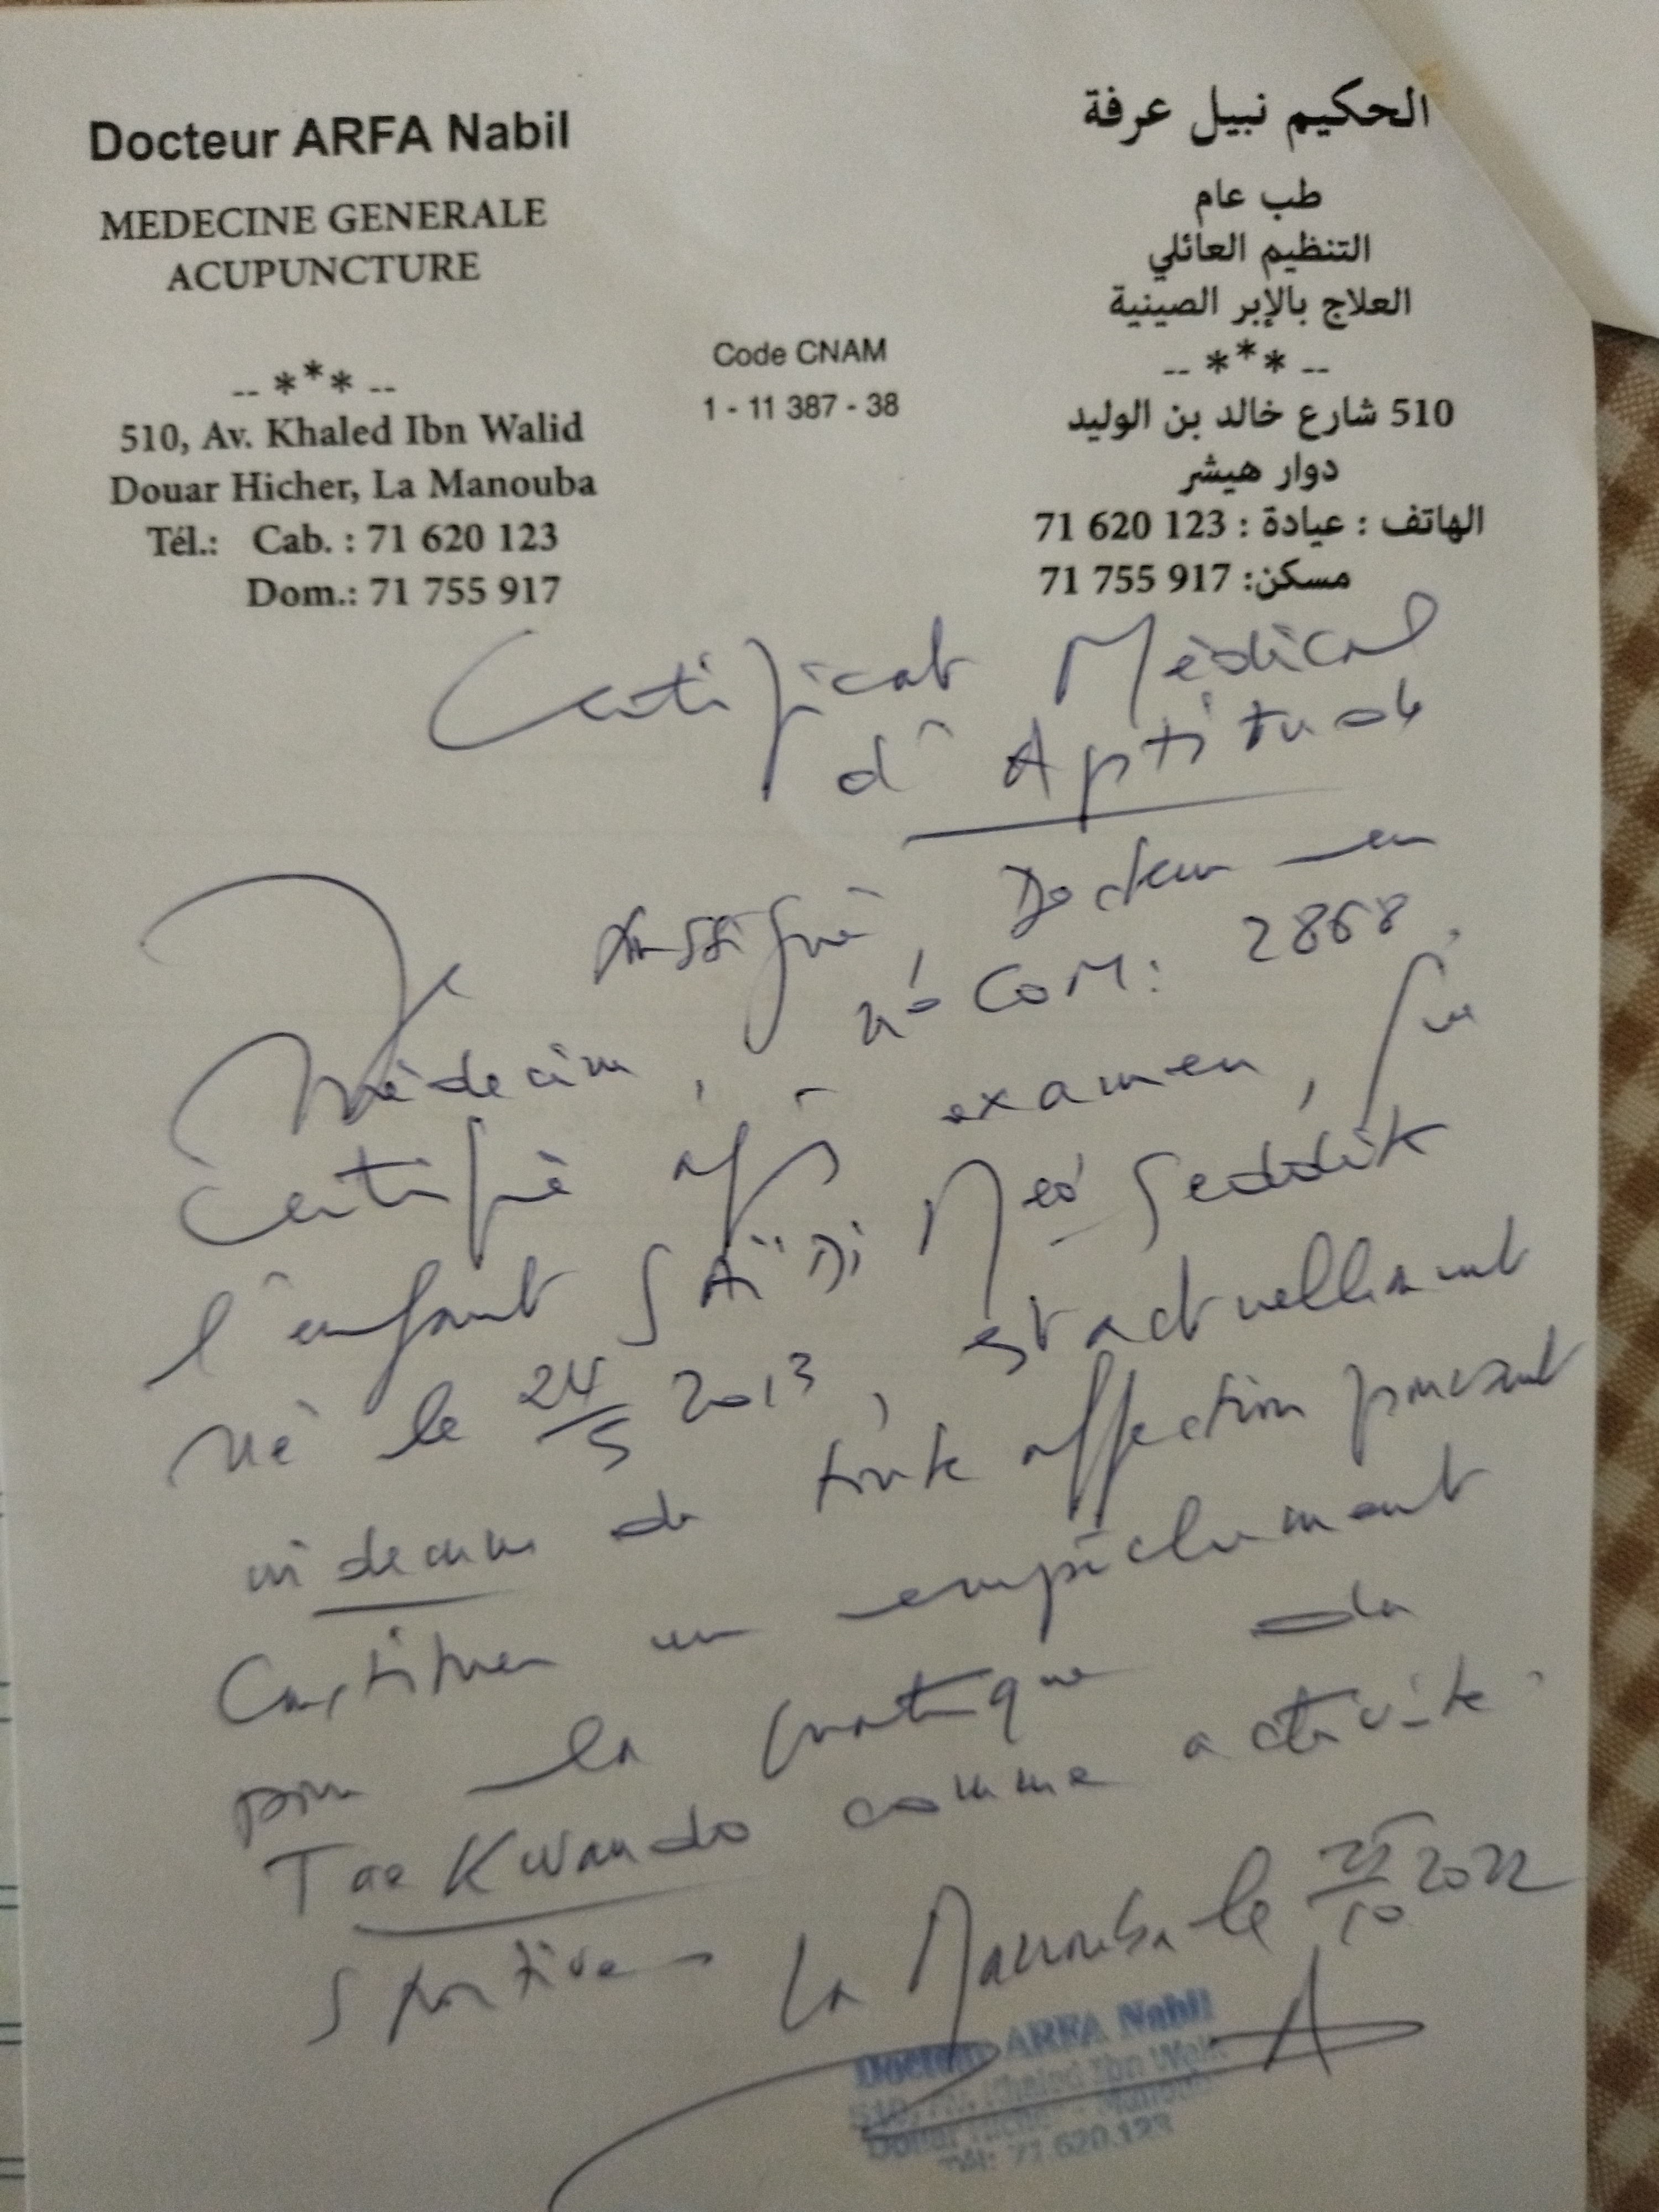 Docteur ARFA Nabil
MEDECINE GENERALE
ACUPUNCTURE
-- *** --
510, Av. Khaled Ibn Walid
Douar Hicher, La Manouba
Tél.: Cab. : 71 620 123
Dom.: 71 755 917
Code CNAM
1 - 11 387 - 38
الحكيم نبيل عرفة
طب عام
التنظيم العائلي
العلاج بالإبر الصينية
-- *** --
510 شارع خالد بن الوليد
دوار هيشر
الهاتف : عيادة : 123 620 71
مسكن: 917 755 71
Certificat Médical
d'Aptitude
Je soussigné, Docteur en
Médecin, n° COM: 2868
Certifié après examen, que
l'enfant SAÏDI Med Seddik
né le 24/5 2013, est actuellement
indemne de toute affection pouvant
Constituer un empêchement
pour la pratique de
Tae Kwando comme activité
Sportive La Manouba le 25/10 2022
Docteur ARFA Nabil
510, Av. Khaled Ibn Walid
Douar Hicher - Manouba
Tél: 71.620.123